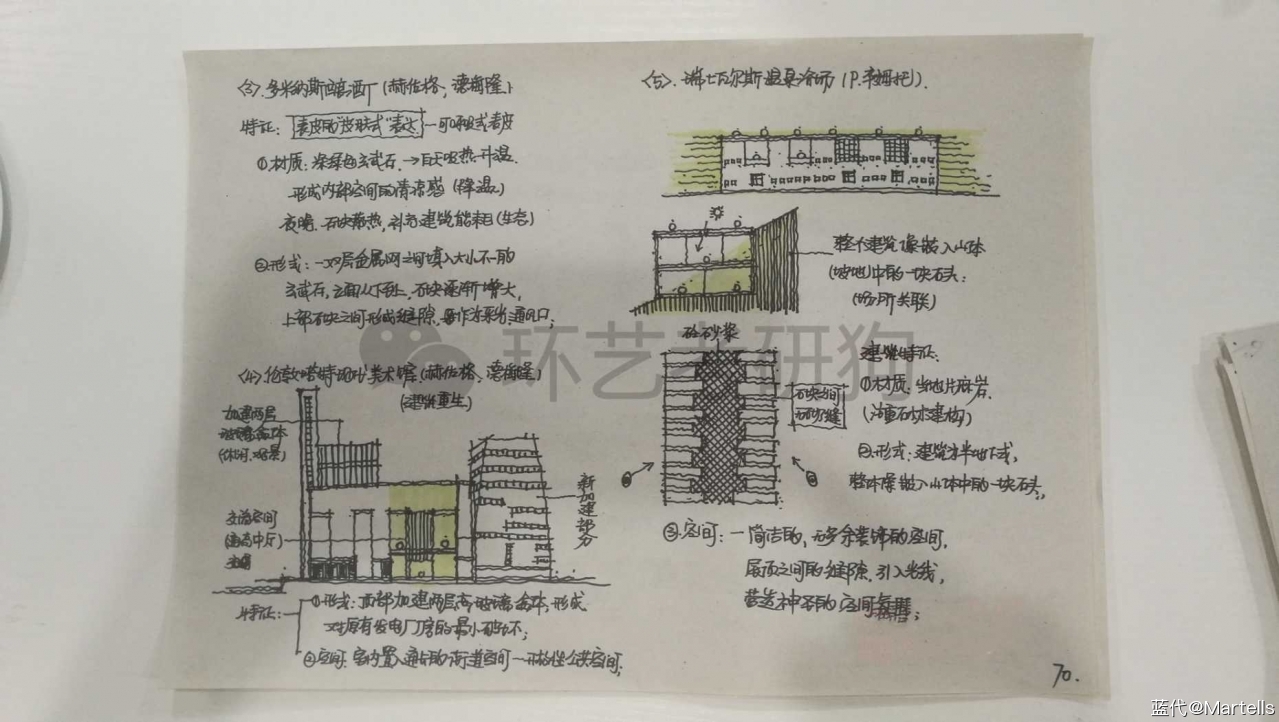 〈3〉. 多米纳斯酿酒厂(赫佐格、德梅隆)
特征: 表皮的"皮肤式"表达 — 可呼吸式表皮
①材质: 深绿色玄武石. → 白天吸热升温.
形成内部空间的清凉感 (降温)
夜晚. 石块散热, 补充建筑能耗 (生态)
②形式: 一双层金属网之间填入大小不一的
玄武石, 立面从下到上, 石块逐渐增大,
上部石块之间形成缝隙, 用作采光、通风口;
〈4〉伦敦塔特现代美术馆 (赫佐格、德梅隆)
(建筑重生)
加建两层
玻璃盒体
(休闲、观景)
交通空间
(通高中厅)
新加建部分
特征:
①形式: 顶部加建两层高玻璃盒体, 形成
对原有发电厂厂房的最小破坏;
②空间: 室内置入通长的街道空间 — 开放性公共空间;
〈5〉. 瑞士瓦尔斯温泉浴场 (P. 卒姆托).
整个建筑像嵌入山体
(坡地)中的一块石头.
(场所关联)
砼砂浆
石块之间
无砂浆缝
建筑特征:
①材质: 当地片麻岩.
(注重石材建构)
②形式: 建筑为半地下式,
整体像嵌入山体中的一块石头.
③空间: 一简洁的, 无多余装饰的空间,
屋面之间的缝隙引入光线,
营造神圣的空间氛围;
70.
环艺考研狗
蓝代@Martells